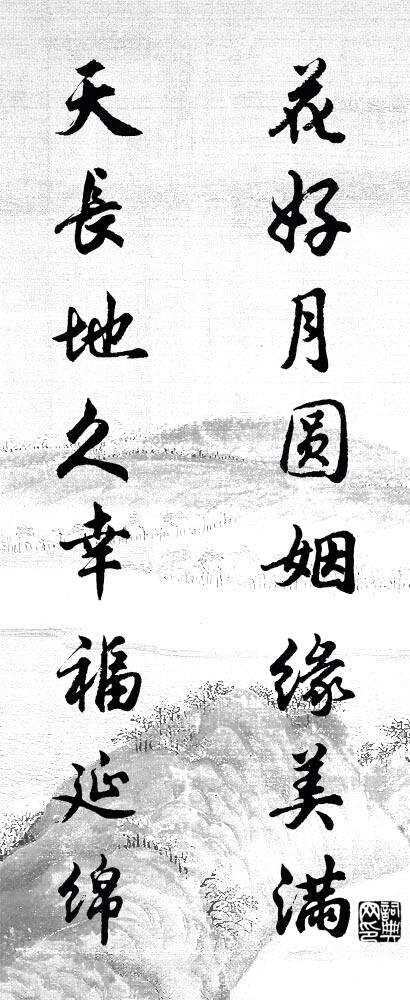 花好月圆姻缘美满
天長地久幸福延绵
詞典网印